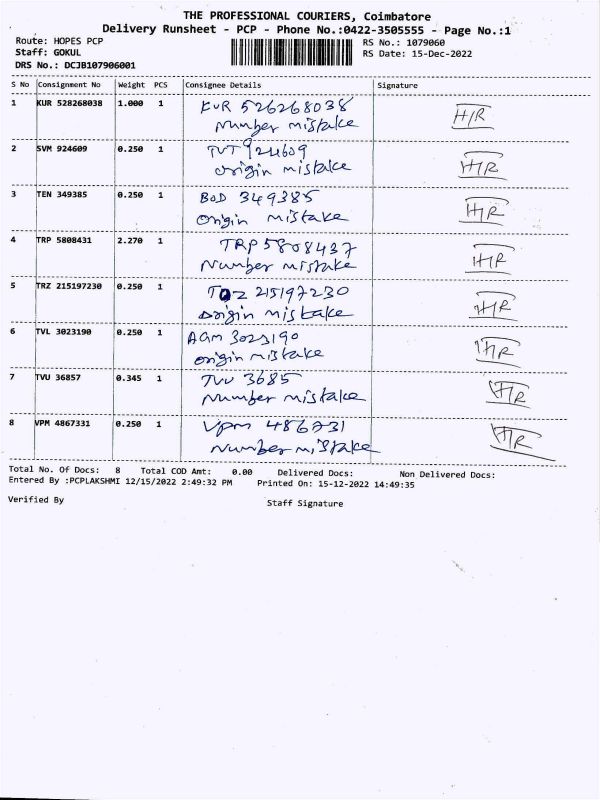 THE PROFESSIONAL COURIERS, Coimbatore
Delivery Runsheet - PCP - Phone No.:0422-3505555 - Page No.:1
Route: HOPES PCP RS No.: 1079060
Staff: GOKUL RS Date: 15-Dec-2022
DRS No.: DCJB107906001
S No Consignment No Weight PCS Consignee Details Signature
1 KUR 528268038 1.000 1 KUR 526268038 H/R
Number mistake
2 SVM 924609 0.250 1 TVT 924609 H/R
origin mistake
3 TEN 349385 0.250 1 BOD 349385 H/R
origin mistake
4 TRP 5808431 2.270 1 TRP 5808437 H/R
Number mistake
5 TRZ 215197230 0.250 1 215197230 H/R
origin mistake
6 TVL 3023190 0.250 1 AGM 3023190 H/R
origin mistake
7 TVU 36857 0.345 1 TVU 3685 H/R
Number mistake
8 VPM 4867331 0.250 1 Vpm 486731 H/R
Number mistake
Total No. Of Docs: 8 Total COD Amt: 0.00 Delivered Docs: Non Delivered Docs:
Entered By :PCPLAKSHMI 12/15/2022 2:49:32 PM Printed On: 15-12-2022 14:49:35
Verified By Staff Signature